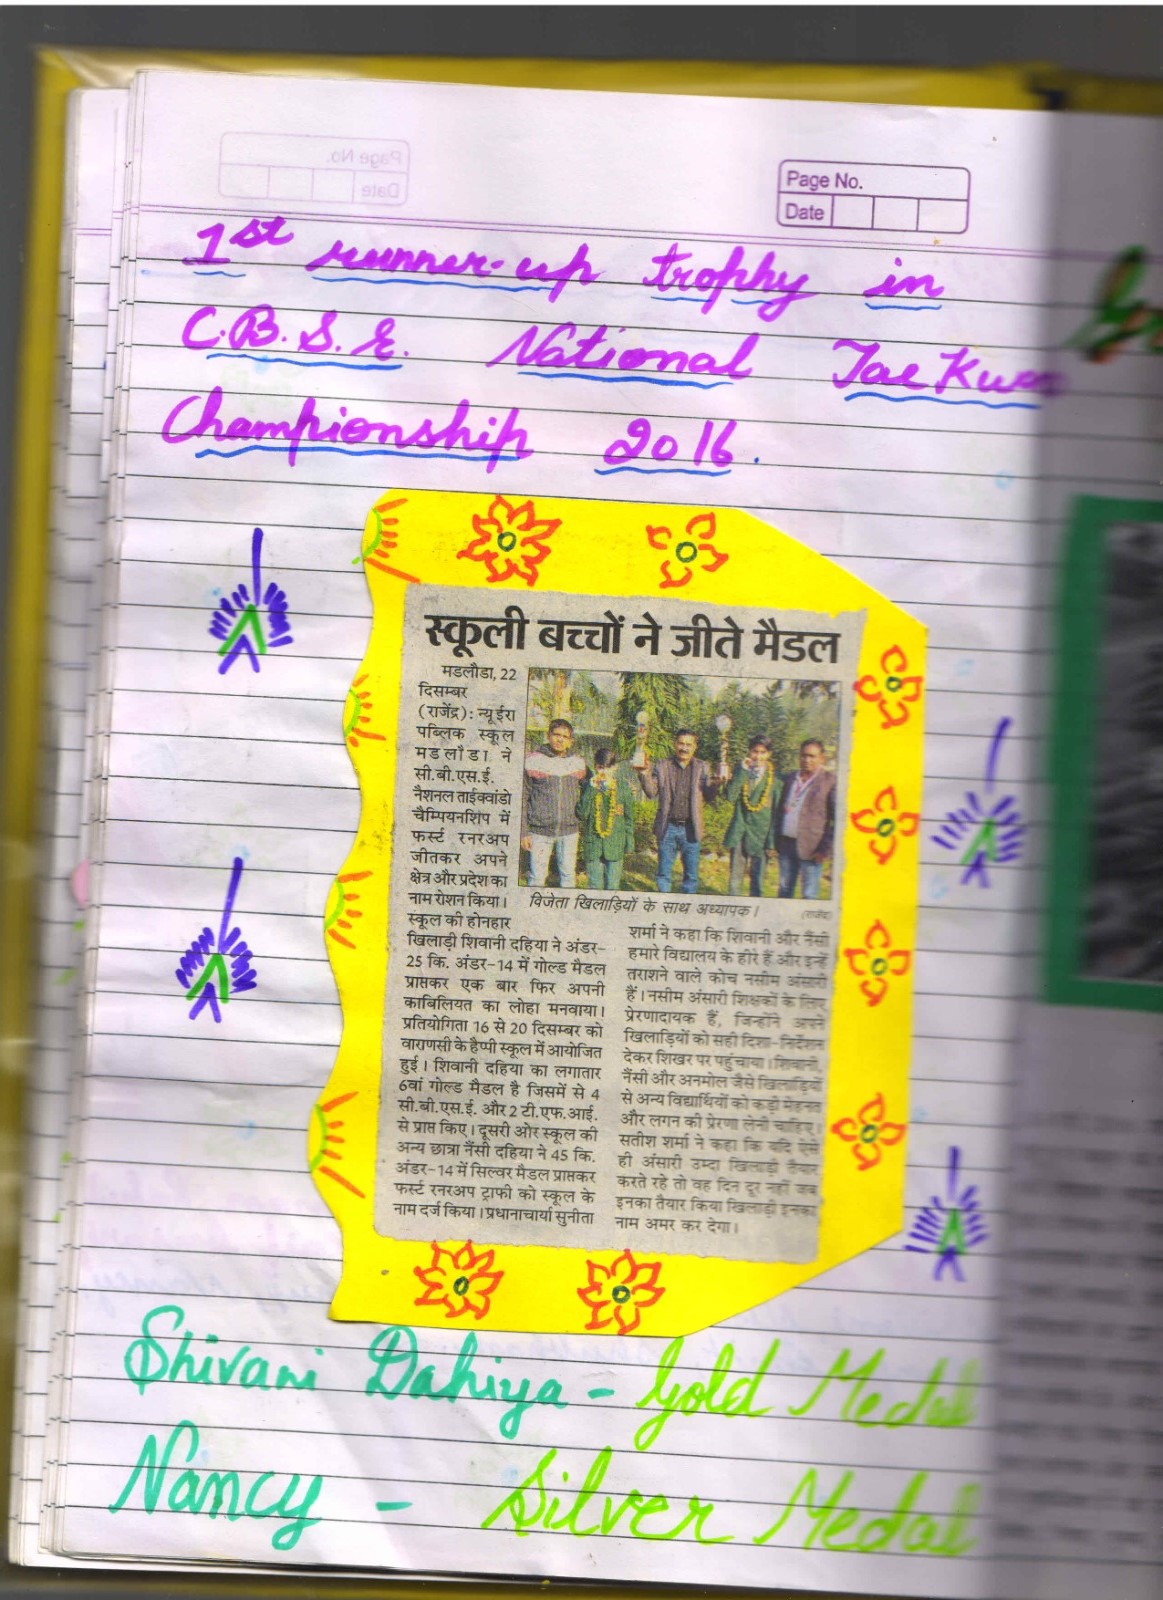 Page No.
Date
1st runner-up trophy in
C.B.S.E. National TaeKwon
Championship 2016.
स्कूली बच्चों ने जीते मैडल
मडलौडा, 22
दिसम्बर
(राजेंद्र) : न्यू ईरा
पब्लिक स्कूल
मडलौडा ने
सी.बी.एस.ई.
नैशनल ताईक्वांडो
चैम्पियनशिप में
फर्स्ट रनरअप
जीतकर अपने
क्षेत्र और प्रदेश का
नाम रोशन किया।
स्कूल की होनहार
खिलाड़ी शिवानी दहिया ने अंडर-
25 कि. अंडर-14 में गोल्ड मैडल
प्राप्तकर एक बार फिर अपनी
काबिलियत का लोहा मनवाया।
प्रतियोगिता 16 से 20 दिसम्बर को
वाराणसी के हैप्पी स्कूल में आयोजित
हुई। शिवानी दहिया का लगातार
6वां गोल्ड मैडल है जिसमें से 4
सी.बी.एस.ई. और 2 टी.एफ.आई.
से प्राप्त किए। दूसरी ओर स्कूल की
अन्य छात्रा नैंसी दहिया ने 45 कि.
अंडर-14 में सिल्वर मैडल प्राप्तकर
फर्स्ट रनरअप ट्राफी को स्कूल के
नाम दर्ज किया। प्रधानाचार्या सुनीता
विजेता खिलाड़ियों के साथ अध्यापक।
(राजेंद्र)
शर्मा ने कहा कि शिवानी और नैंसी
हमारे विद्यालय के हीरे हैं और इन्हें
तराशने वाले कोच नसीम अंसारी
हैं। नसीम अंसारी शिक्षकों के लिए
प्रेरणादायक हैं, जिन्होंने अपने
खिलाड़ियों को सही दिशा-निर्देशन
देकर शिखर पर पहुंचाया। शिवानी,
नैंसी और अनमोल जैसे खिलाड़ियों
से अन्य विद्यार्थियों को कड़ी मेहनत
और लगन की प्रेरणा लेनी चाहिए।
सतीश शर्मा ने कहा कि यदि ऐसे
ही अंसारी उम्दा खिलाड़ी तैयार
करते रहे तो वह दिन दूर नहीं जब
इनका तैयार किया खिलाड़ी इनका
नाम अमर कर देगा।
Shivani Dahiya - Gold Medal
Nancy - Silver Medal